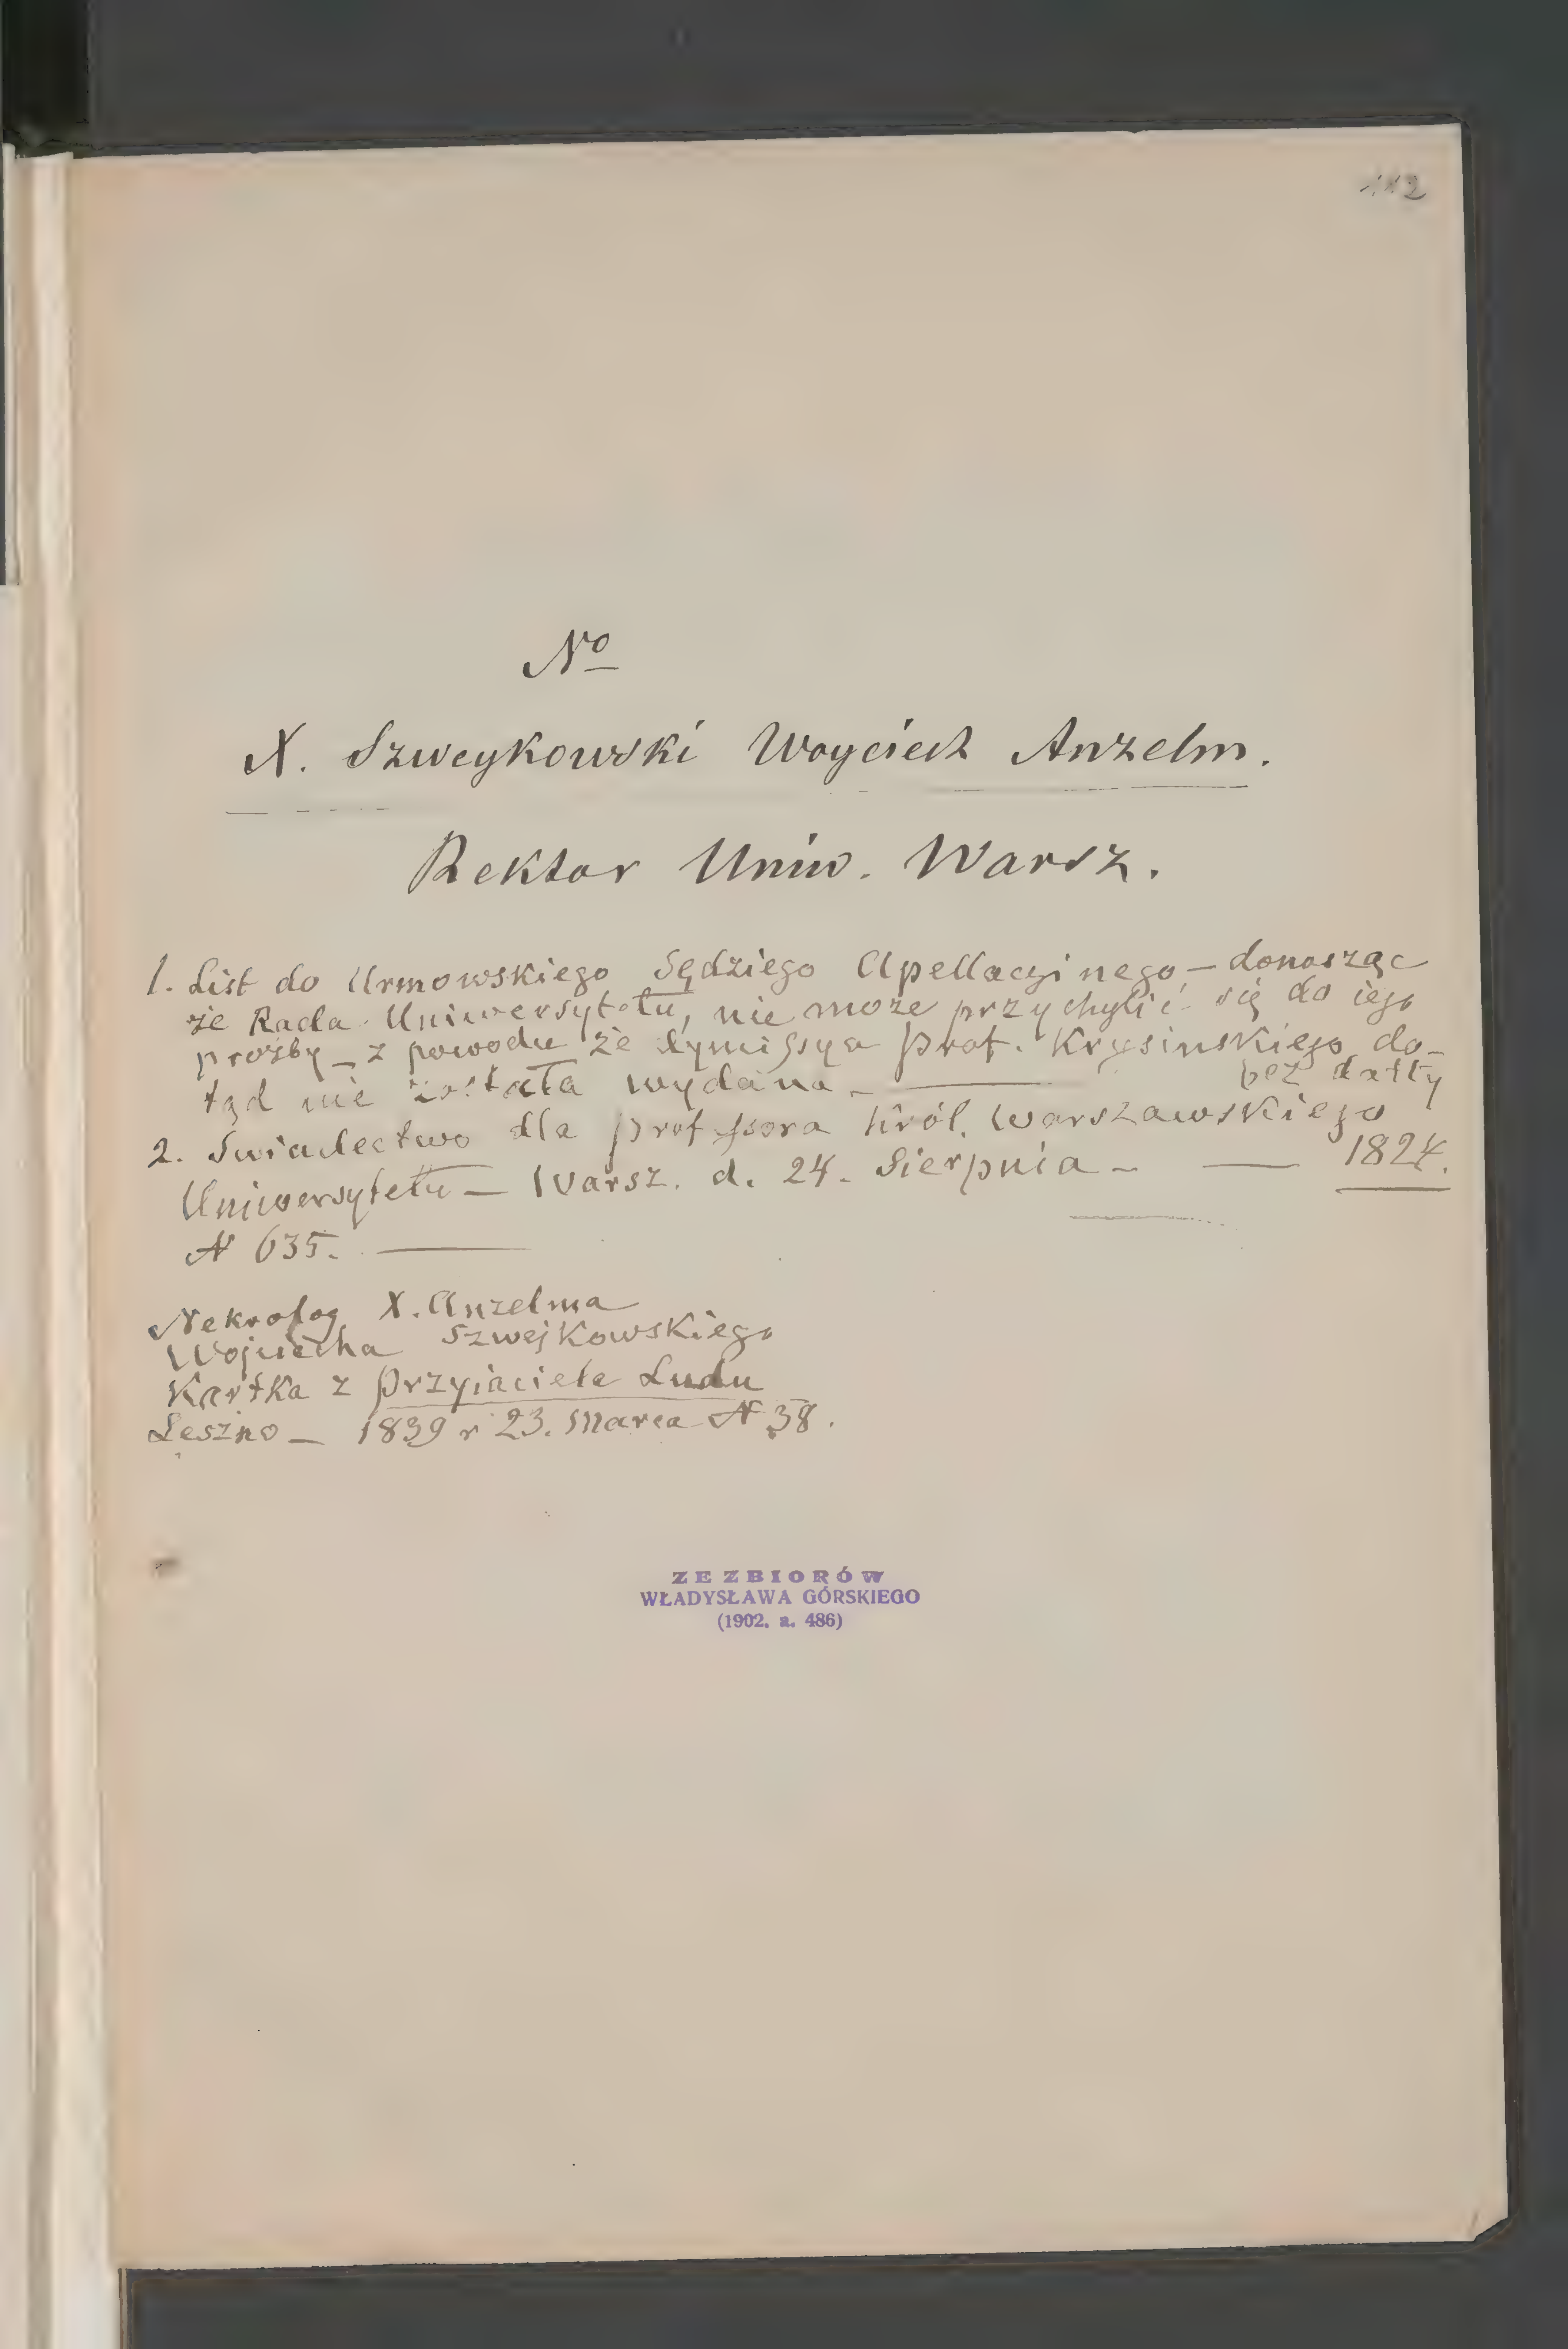 112
No
X. Szweykowski Woyciech Anzelm.
Rektor Uniw. Warsz.
1. List do Urmowskiego Sędziego Apellacyinego, – donosząc
że Rada Uniwersytetu, nie może przychylić się do iego
prośby – z powodu że dymissya Prof. Krysinskiego do-
tąd nie została wydana – bez datty
2. Swiadectwo dla professora Król. Warszawskiego
Uniwersytetu – Warsz. d. 24. Sierpnia – — 1824.
N 635. —
Nekrolog X. Anzelma
Wojciecha Szwejkowskiego
Kartka z Przyiaciela Ludu
Leszno – 1839 r 23. Marca N 38.
ZE ZBIORÓW
WŁADYSŁAWA GÓRSKIEGO
(1902. a. 486)